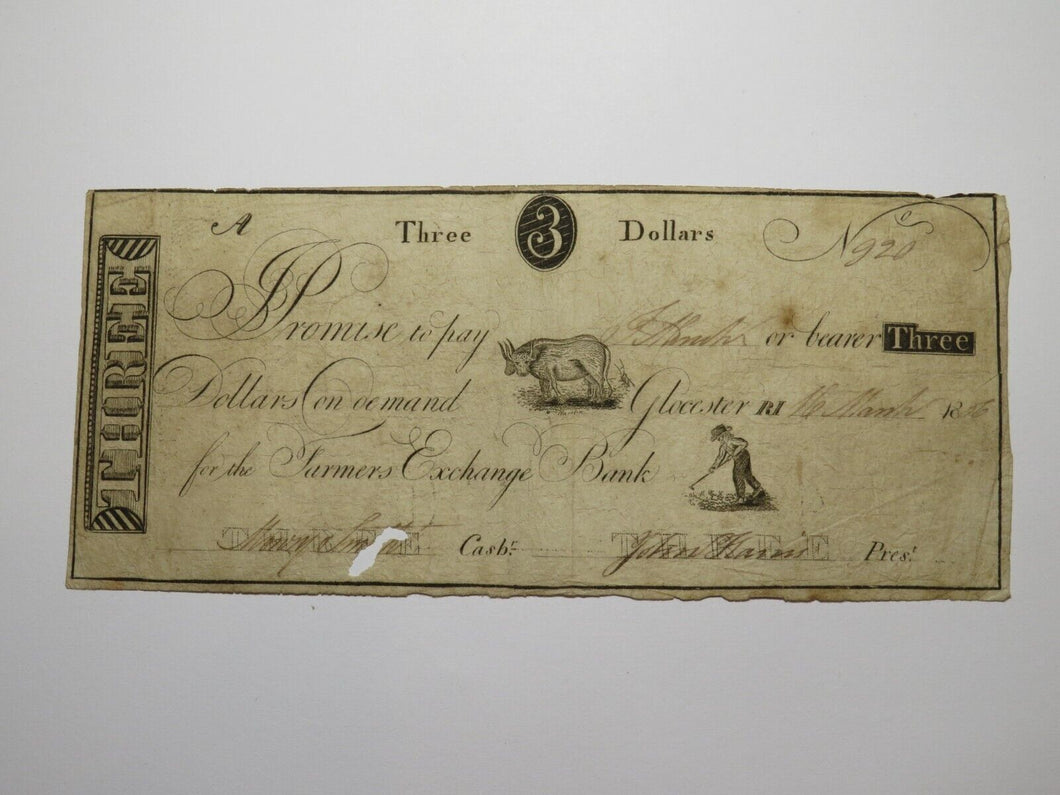 A Three 3 Dollars No 920
THREE
I Promise to pay or bearer Three
Dollars on demand Glocester RI 16 March 18
for the Farmers Exchange Bank
THREE THREE
Cashr. John Pres.t